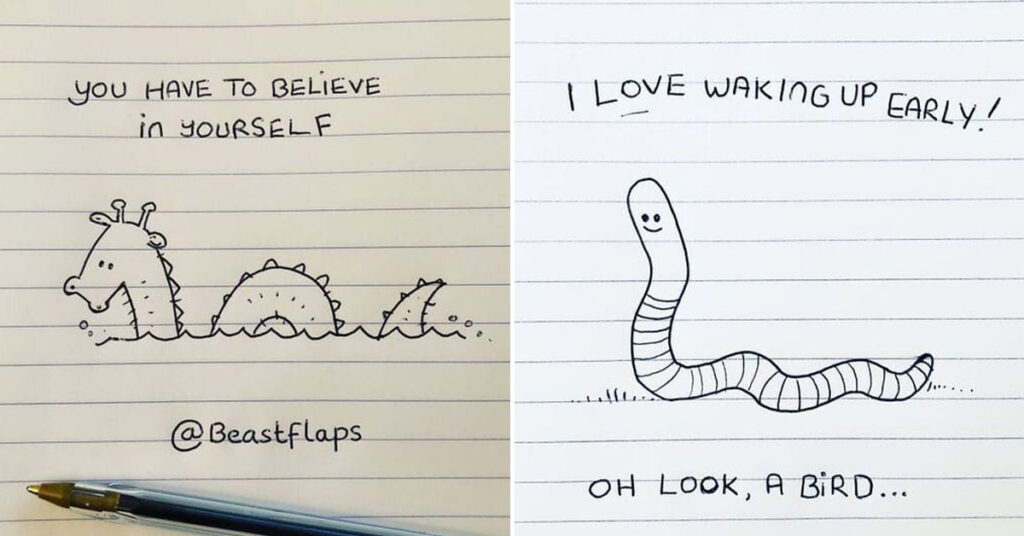 YOU HAVE TO BELIEVE
in YOURSELF
@Beastflaps
I LOVE WAKING UP EARLY!
OH LOOK, A BIRD...